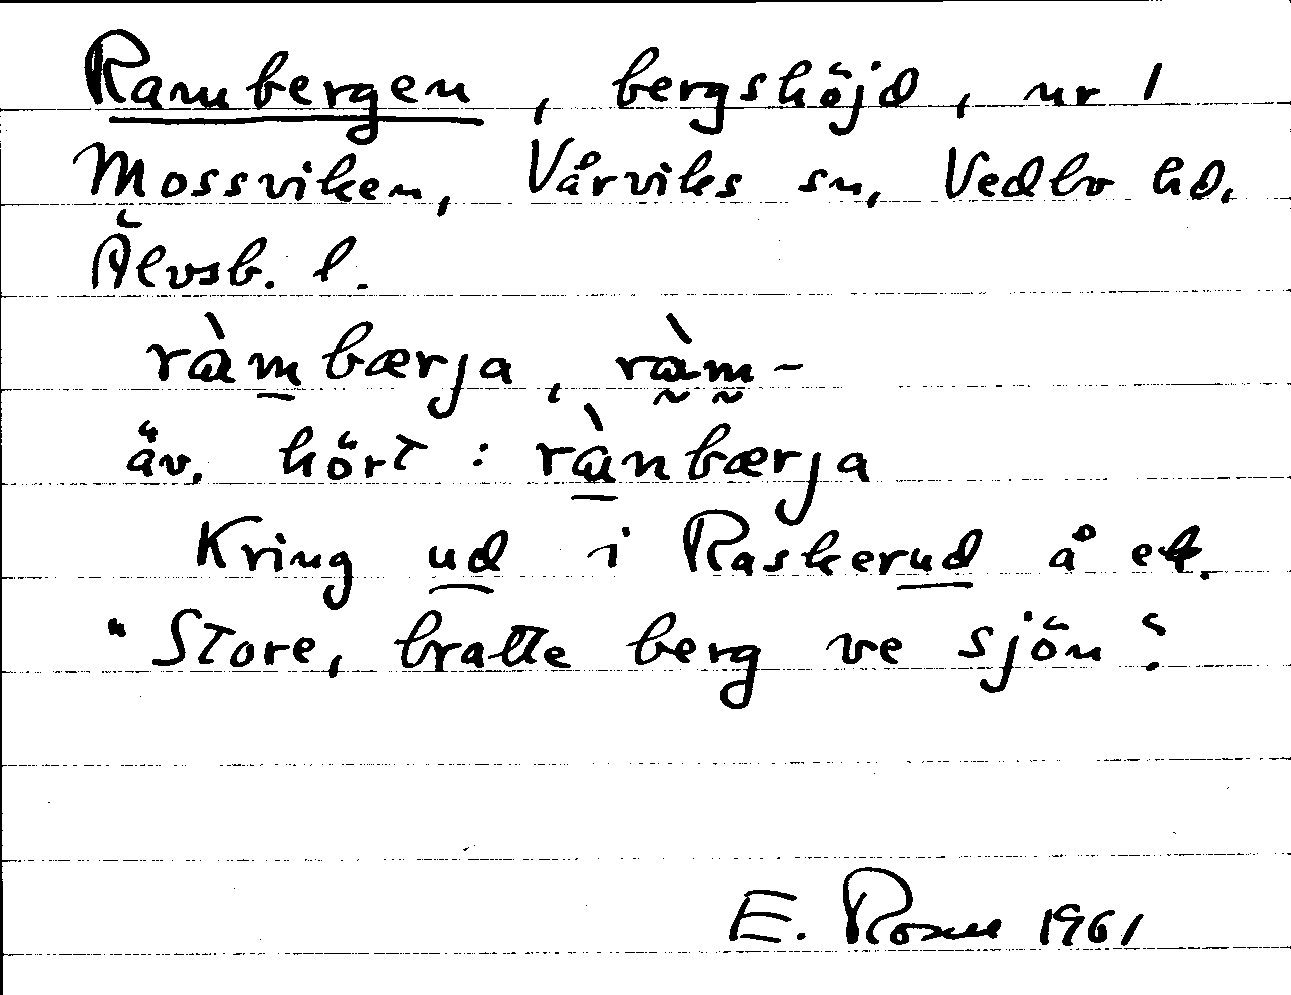 Rambergen, bergshöjd, nr 1
Mossviken, Vårviks sn, Vedbo hd.
Älvsb. l.
ràmbærja, ràm-
äv. hört: rànbærja
Kring ud i Raskerud å
"Store, bratte berg ve sjön".
E. 1961